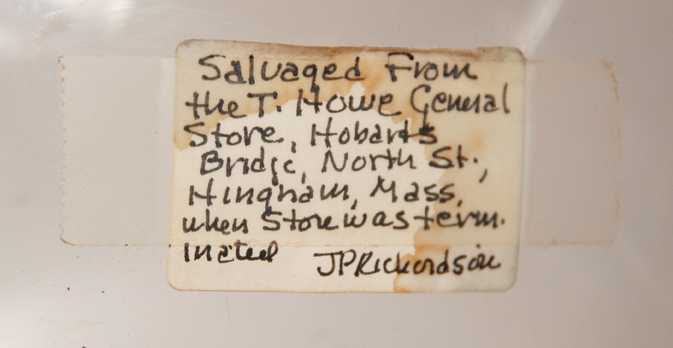 Salvaged From
the T. Howe General
Store, Hobarts
Bridge, North St.,
Hingham, Mass,
when Store was term.
inated JPRichardson